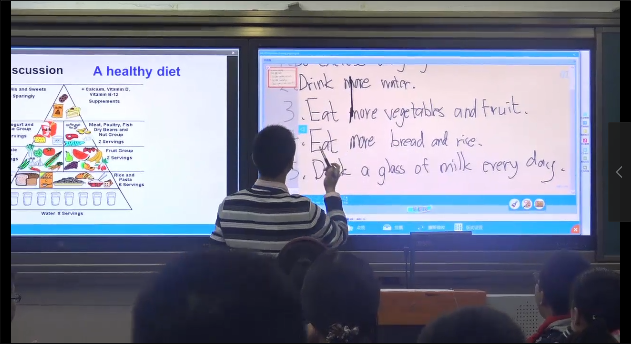 scussion A healthy diet
and Sweets
Sparingly
+ Calcium, Vitamin D,
Vitamin B-12
Supplements
Meat, Poultry, Fish
Dry Beans and
Nut Group
2 Servings
Fruit Group
2 Servings
Rice and
Pasta
6 Servings
Water 8 Servings
Drink more water.
3. Eat more vegetables and fruit.
Eat more bread and rice.
Drink a glass of milk every day.